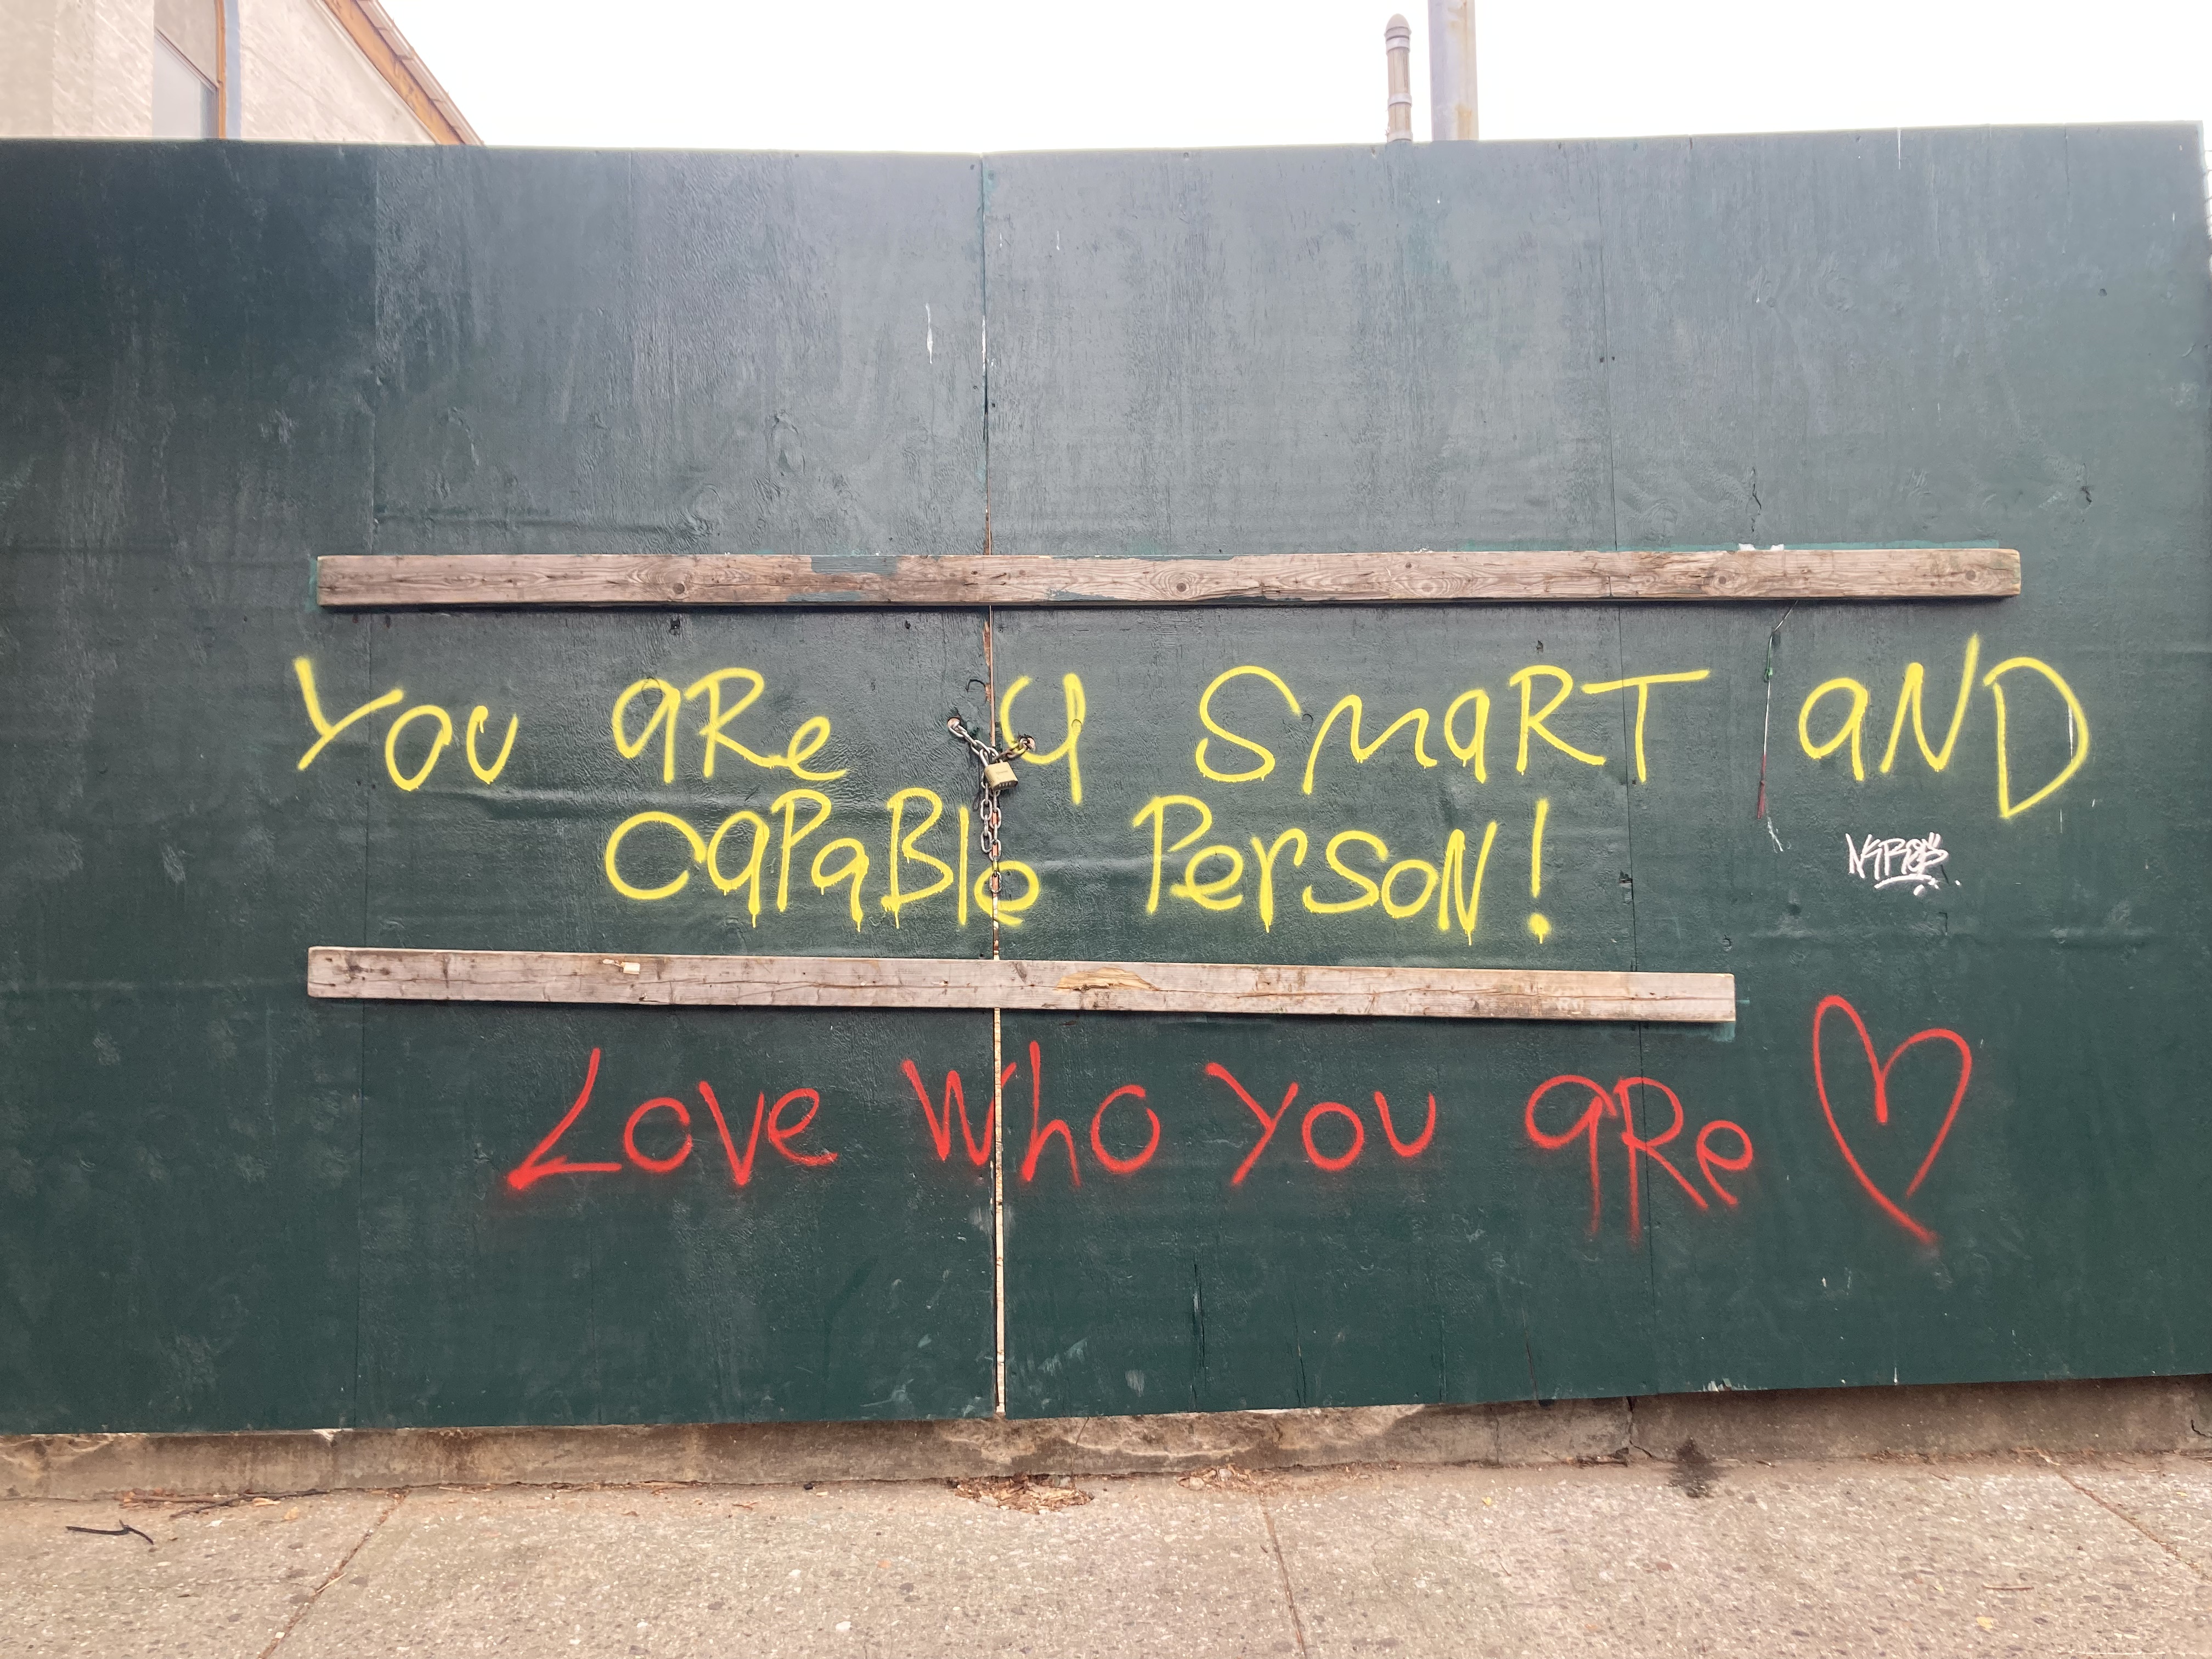 YOU aRe a SmaRT aND
CaPaBle PersoN!
Love Who You aRe